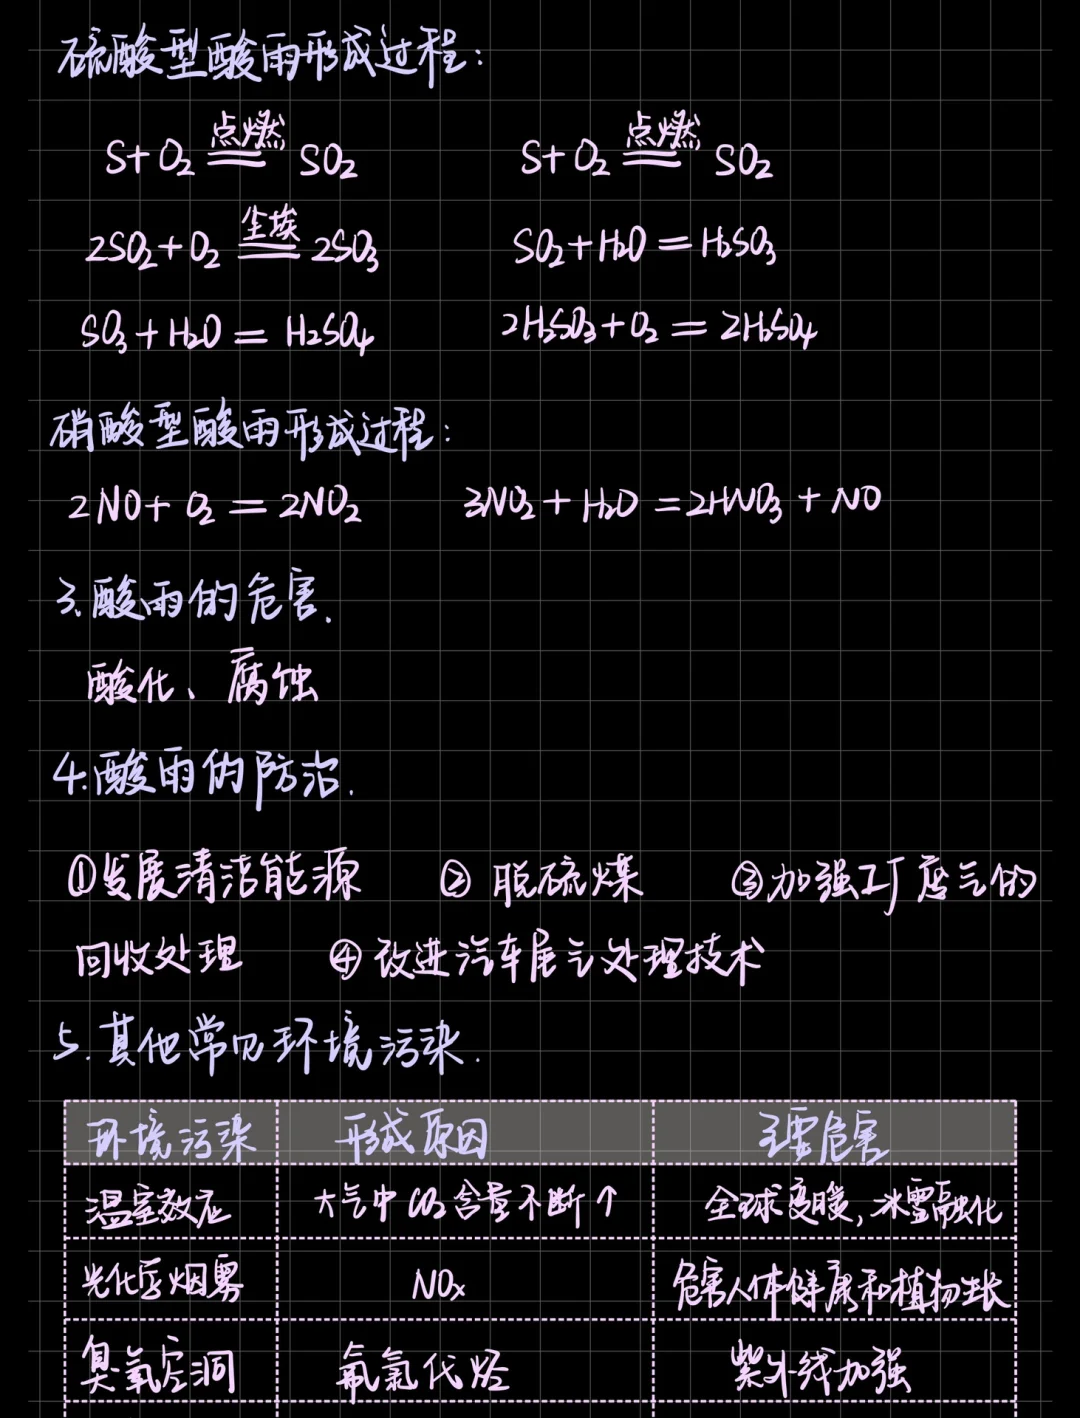 硫酸型酸雨形成过程：
S+O₂ 点燃 SO₂ S+O₂ 点燃 SO₂
2SO₂+O₂ 尘埃 2SO₃ SO₂+H₂O=H₂SO₃
SO₃+H₂O=H₂SO₄ 2H₂SO₃+O₂=2H₂SO₄
硝酸型酸雨形成过程：
2NO+O₂=2NO₂ 3NO₂+H₂O=2HNO₃+NO
3.酸雨的危害.
酸化、腐蚀
4.酸雨的防治.
①发展清洁能源 ②脱硫煤 ③加强工厂废气的
回收处理 ④改进汽车尾气处理技术
5.其他常见环境污染.
环境污染 形成原因 主要危害
温室效应 大气中CO₂含量不断↑ 全球变暖,冰雪融化
光化学烟雾 NOx 危害人体健康和植物生长
臭氧空洞 氟氯代烃 紫外线加强